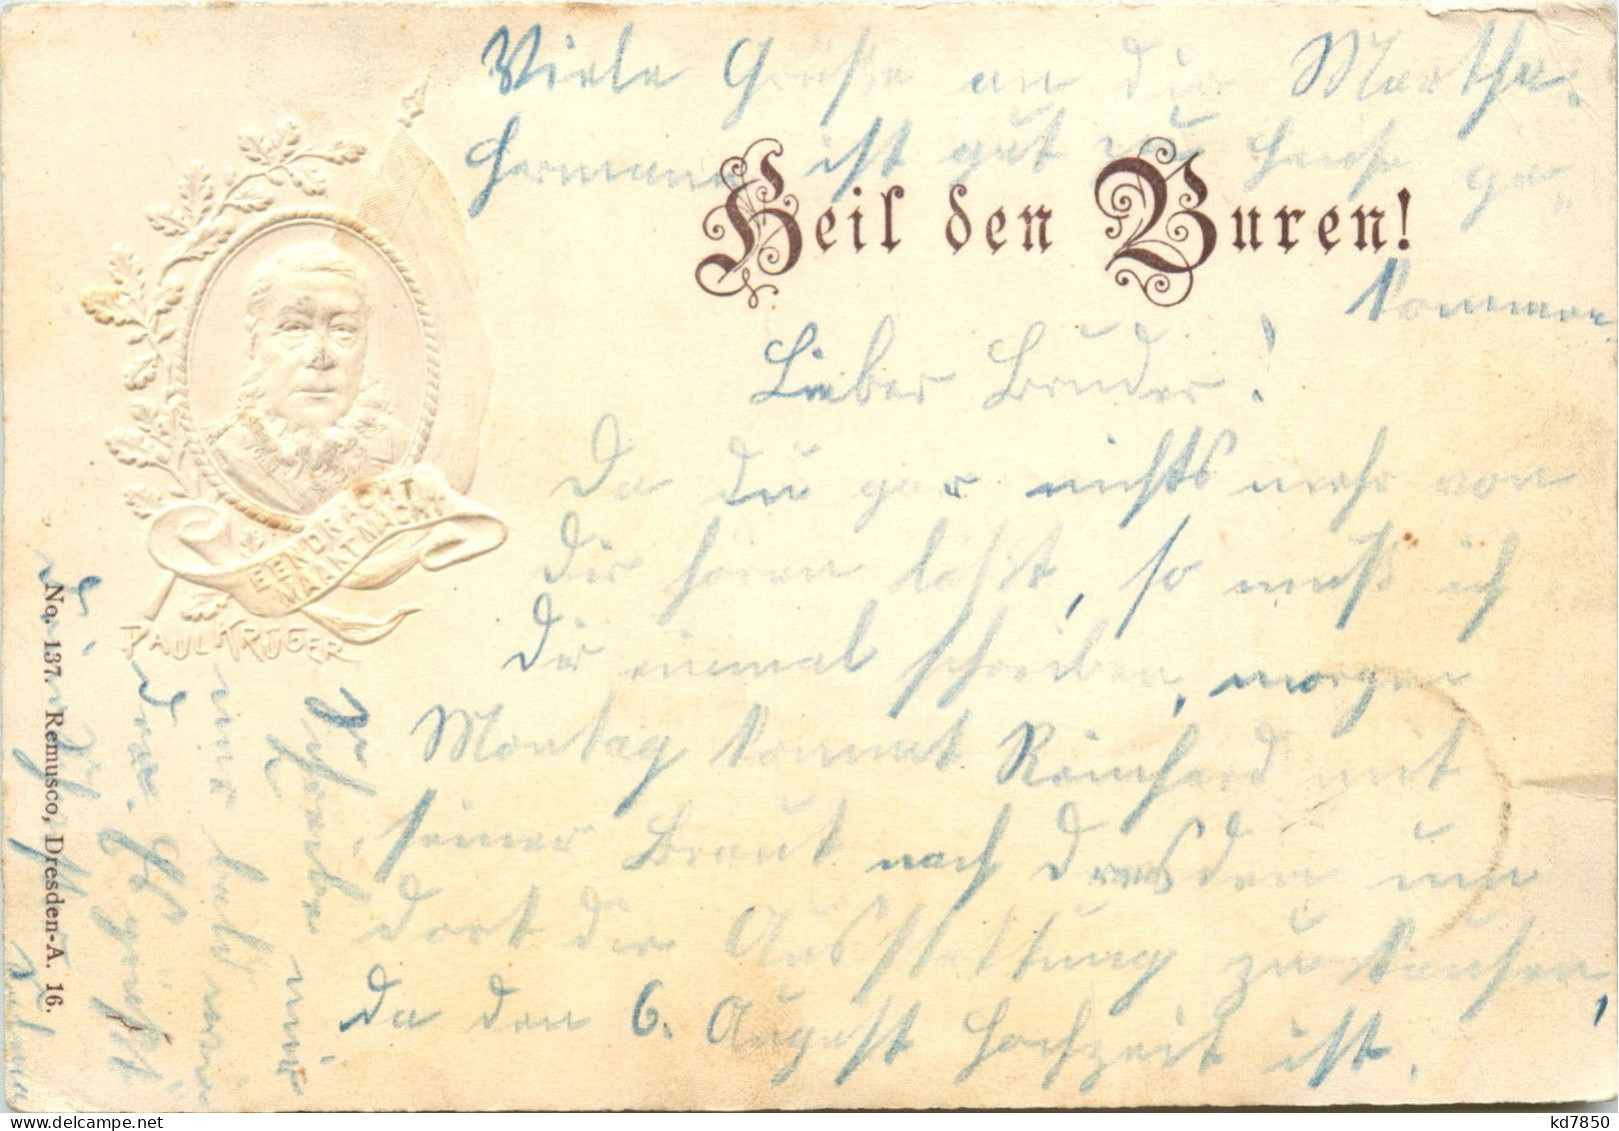 Viele Grüße an die Martha.
Hermann ist gut zu Hause ge-
Heil den Buren!
kommen
Lieber Bruder!
Da du gar nichts mehr von
dir hören läßt, so muß ich
dir einmal schreiben, morgen
Montag kommt Reinhard mit
seiner Braut nach Dresden um
dort die Ausstattung zu kaufen,
da den 6. August Hochzeit ist.
Schreibe mir
nur bald wie
Es grüßt
EENDRACHT
MAAKT MACHT
PAUL KRUGER
No. 137. Remusco, Dresden-A. 16.
kd7850